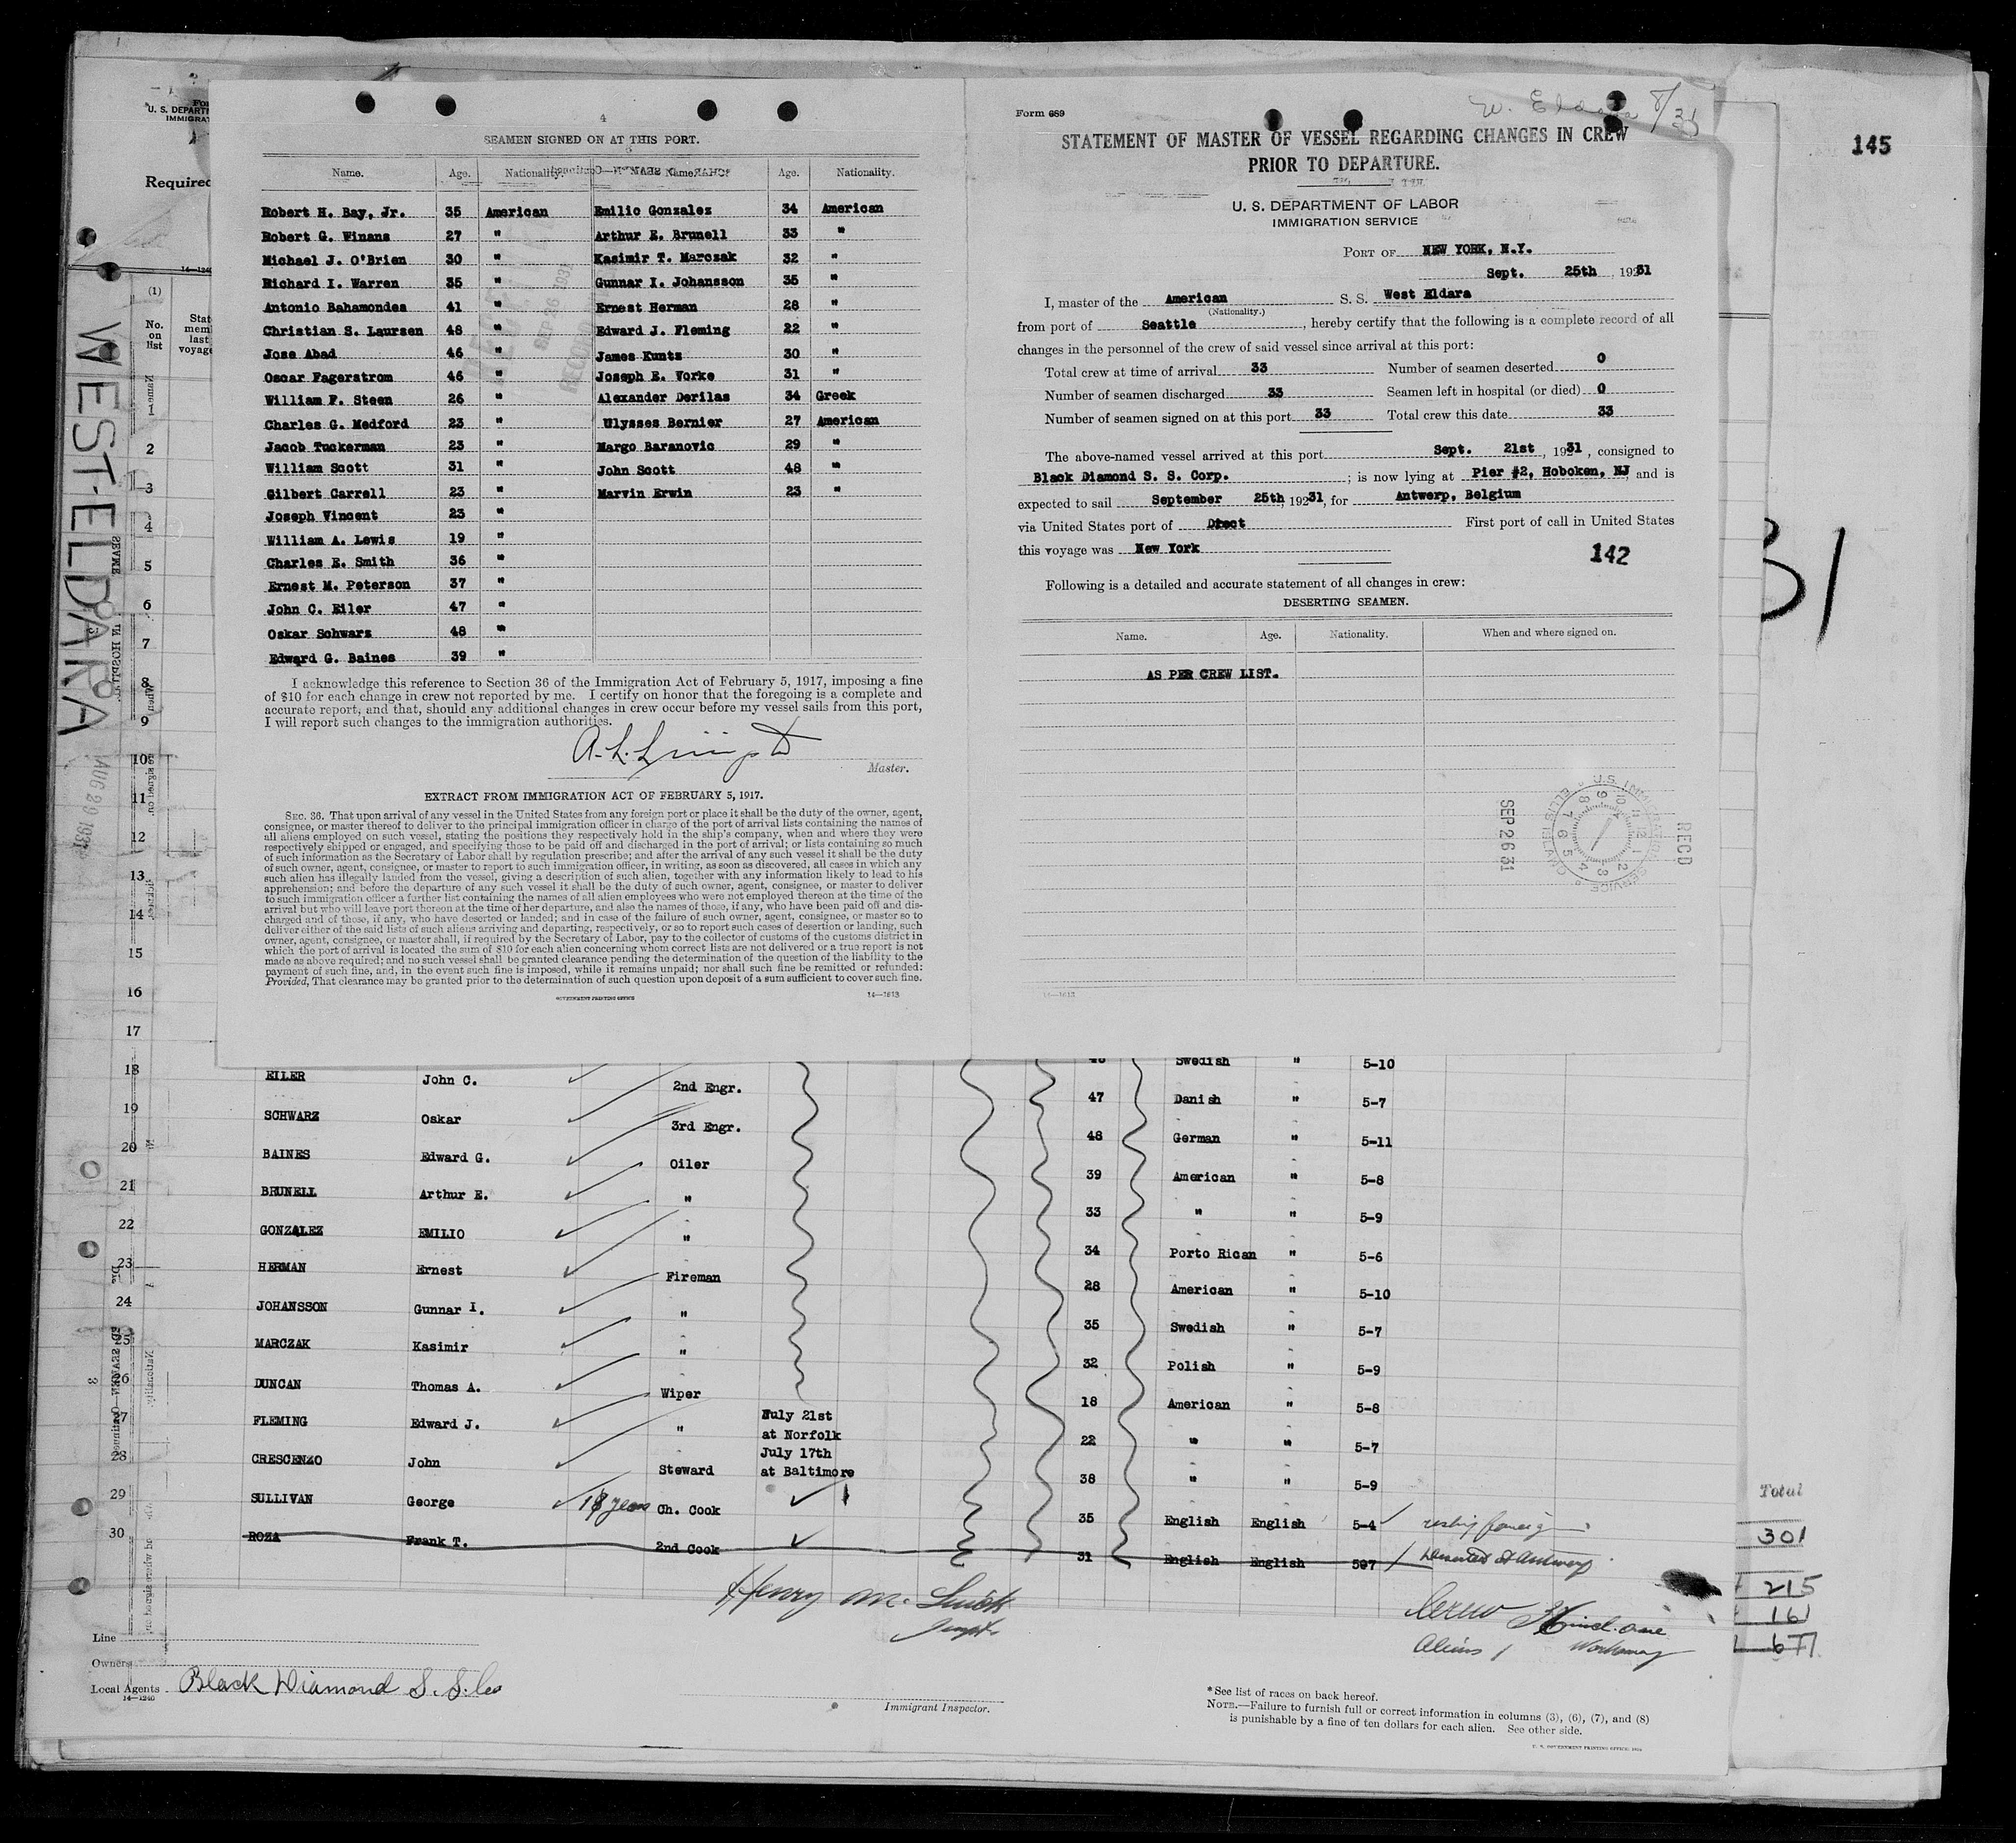 145
WEST-ELDARA
AUG 29 1931
U. S. DEPART
IMMIGRAT
Required
14—1240
(1)
No. on list
4
SEAMEN SIGNED ON AT THIS PORT.
Name. Age. Nationality. Name. Age. Nationality.
Robert H. Bay, Jr. 35 American Emilio Gonzalez 34 American
Robert G. Winans 27 " Arthur E. Brunell 33 "
Michael J. O'Brien 30 " Kasimir T. Marczak 32 "
Richard I. Warren 35 " Gunnar I. Johansson 35 "
Antonio Bahamondes 41 " Ernest Herman 28 "
Christian S. Laursen 48 " Edward J. Fleming 22 "
Jose Abad 46 " James Kuntz 30 "
Oscar Fagerstrom 46 " Joseph E. Vorke 31 "
William F. Steen 26 " Alexander Derilas 34 Greek
Charles G. Medford 23 " Ulysses Bernier 27 American
Jacob Tuckerman 23 " Margo Baranovic 29 "
William Scott 31 " John Scott 48 "
Gilbert Carrell 23 " Marvin Erwin 23 "
Joseph Vincent 23 "
William A. Lewis 19 "
Charles E. Smith 36 "
Ernest M. Peterson 37 "
John C. Eiler 47 "
Oskar Schwarz 48 "
Edward G. Baines 39 "
I acknowledge this reference to Section 36 of the Immigration Act of February 5, 1917, imposing a fine
of $10 for each change in crew not reported by me. I certify on honor that the foregoing is a complete and
accurate report, and that, should any additional changes in crew occur before my vessel sails from this port,
I will report such changes to the immigration authorities.
Master.
EXTRACT FROM IMMIGRATION ACT OF FEBRUARY 5, 1917.
SEC. 36. That upon arrival of any vessel in the United States from any foreign port or place it shall be the duty of the owner, agent,
consignee, or master thereof to deliver to the principal immigration officer in charge of the port of arrival lists containing the names of
all aliens employed on such vessel, stating the positions they respectively hold in the ship's company, when and where they were
respectively shipped or engaged, and specifying those to be paid off and discharged in the port of arrival; or lists containing so much
of such information as the Secretary of Labor shall by regulation prescribe; and after the arrival of any such vessel it shall be the duty
of such owner, agent, consignee, or master to report to such immigration officer, in writing, as soon as discovered, all cases in which any
such alien has illegally landed from the vessel, giving a description of such alien, together with any information likely to lead to his
apprehension; and before the departure of any such vessel it shall be the duty of such owner, agent, consignee, or master to deliver
to such immigration officer a further list containing the names of all alien employees who were not employed thereon at the time of the
arrival but who will leave port thereon at the time of her departure, and also the names of those, if any, who have been paid off and dis-
charged and of those, if any, who have deserted or landed; and in case of the failure of such owner, agent, consignee, or master so to
deliver either of the said lists of such aliens arriving and departing, respectively, or so to report such cases of desertion or landing, such
owner, agent, consignee, or master shall, if required by the Secretary of Labor, pay to the collector of customs of the customs district in
which the port of arrival is located the sum of $10 for each alien concerning whom correct lists are not delivered or a true report is not
made as above required; and no such vessel shall be granted clearance pending the determination of the question of the liability to the
payment of such fine, and, in the event such fine is imposed, while it remains unpaid; nor shall such fine be remitted or refunded:
Provided, That clearance may be granted prior to the determination of such question upon deposit of a sum sufficient to cover such fine.
GOVERNMENT PRINTING OFFICE 14—1613
Form 689
W. Eldara 8/31
STATEMENT OF MASTER OF VESSEL REGARDING CHANGES IN CREW
PRIOR TO DEPARTURE.
U. S. DEPARTMENT OF LABOR
IMMIGRATION SERVICE
PORT OF NEW YORK, N.Y.
Sept. 25th, 1931
I, master of the American S. S. West Eldara
(Nationality.)
from port of Seattle, hereby certify that the following is a complete record of all
changes in the personnel of the crew of said vessel since arrival at this port:
Total crew at time of arrival 33 Number of seamen deserted 0
Number of seamen discharged 33 Seamen left in hospital (or died) 0
Number of seamen signed on at this port 33 Total crew this date 33
The above-named vessel arrived at this port Sept. 21st, 1931, consigned to
Black Diamond S. S. Corp.; is now lying at Pier #2, Hoboken, NJ and is
expected to sail September 25th, 1931, for Antwerp, Belgium
via United States port of Direct First port of call in United States
this voyage was New York
142
Following is a detailed and accurate statement of all changes in crew:
DESERTING SEAMEN.
Name. Age. Nationality. When and where signed on.
AS PER CREW LIST.
REC'D
SEP 26 31
U.S. IMMIGRATION SERVICE
14—1613
Swedish " 5-10
18 EILER John C. 2nd Engr. 47 Danish " 5-7
19 SCHWARZ Oskar 3rd Engr. 48 German " 5-11
20 BAINES Edward G. Oiler 39 American " 5-8
21 BRUNELL Arthur E. " 33 " " 5-9
22 GONZALEZ EMILIO " 34 Porto Rican " 5-6
23 HERMAN Ernest Fireman 28 American " 5-10
24 JOHANSSON Gunnar I. " 35 Swedish " 5-7
25 MARCZAK Kasimir " 32 Polish " 5-9
26 DUNCAN Thomas A. Wiper 18 American " 5-8
27 FLEMING Edward J. " July 21st at Norfolk 22 " " 5-7
28 CRESCENZO John Steward July 17th at Baltimore 38 " " 5-9
29 SULLIVAN George 18 years Ch. Cook 35 English English 5-4
30 ROZA Frank T. 2nd Cook 31 English English 507 Deserted at Antwerp
Total
301
215
161
677
Henry M.
Aliens 1 Workaway
Line
Owners
Local Agents Black Diamond S. S. Co
14—1240
Immigrant Inspector.
*See list of races on back hereof.
NOTE.—Failure to furnish full or correct information in columns (3), (6), (7), and (8)
is punishable by a fine of ten dollars for each alien. See other side.